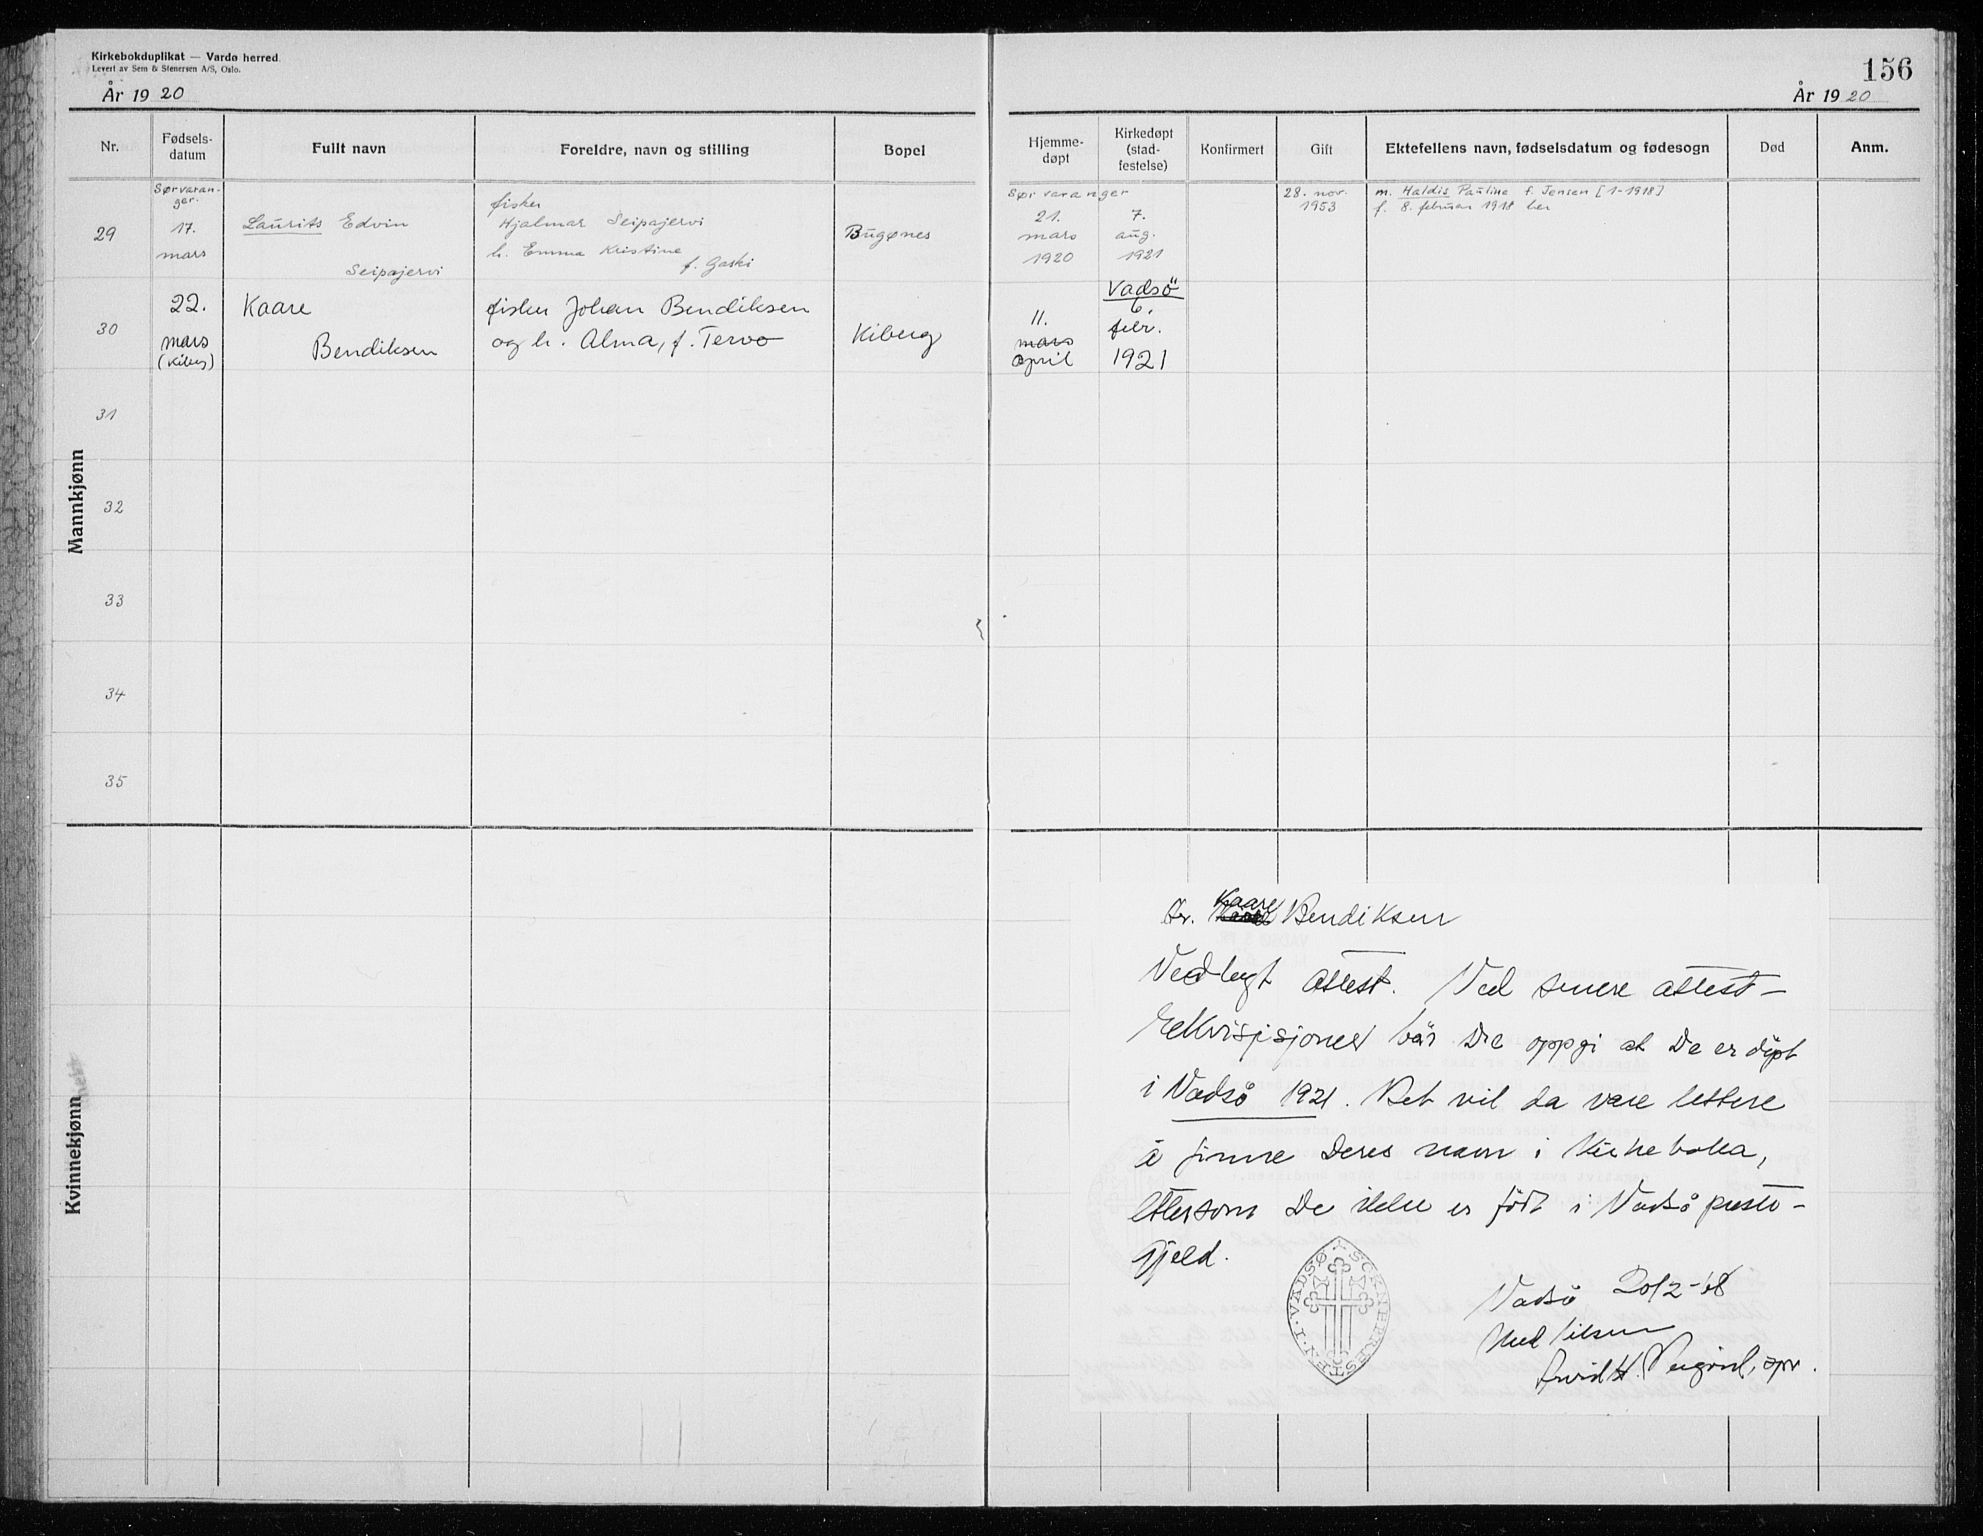 Kirkebokduplikat — Vardø herred
Levert av Sem & Stenersen A/S, Oslo.
År 1920
156
År 1920
Nr.
Fødsels-
datum
Fullt navn
Foreldre, navn og stilling
Bopel
Hjemme-
døpt
Kirkedøpt
(stad-
festelse)
Konfirmert
Gift
Ektefellens navn, fødselsdatum og fødesogn
Død
Anm.
Mannkjønn
29
Sørvaran-
ger.
17.
mars
Laurits Edvin
Seipajervi
fisker
Hjalmar Seipajervi
h. Emma Kristine
f. Gaski
Bugønes
Sørvaranger
21.
mars
1920
7.
aug.
1921
28. nov.
1953
m. Haldis Pauline f. Jensen [1-1918]
f. 8. februar 1918 her
30
22.
mars
(Kiberg)
Kaare
Bendiksen
fisker Johan Bendiksen
og h. Alma, f. Tervo
Kiberg
11.
mars
april
Vadsö
6.
febr.
1921
31
32
33
34
35
Kvinnekjønn
Kaare
Hr. Bendiksen
Vedlagt attest. Ved senere attest-
rekvisisjoner bør De oppgi at De er döpt
i Vadsö 1921. Det vil da være lettere
å finne Deres navn i kirkeboka,
ettersom De ikke er född i Vadsö preste-
gjeld.
Vadsö 20/2-68
Med hilsen
Arvid H. spr.